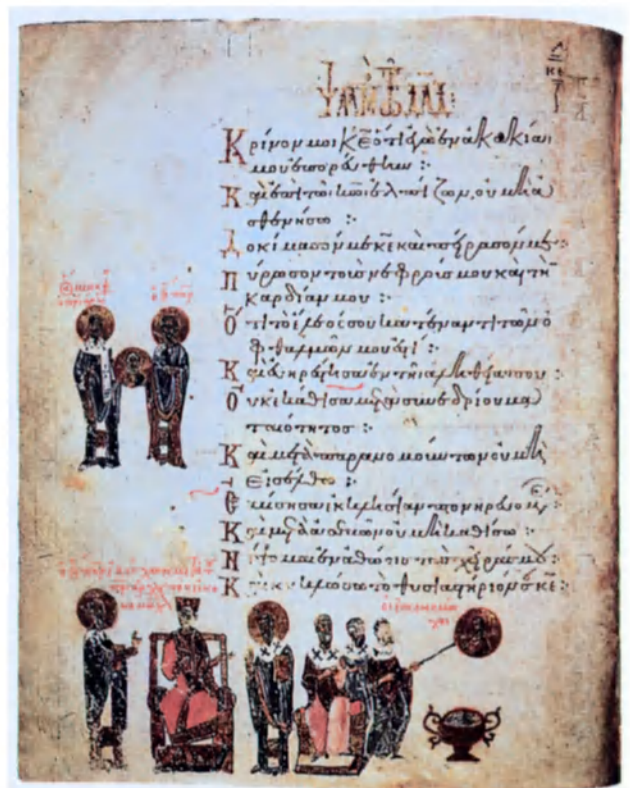 ψαλμὸς τῷ δᾱδ:
Κρίνον μοι κ̅ε̅ ὅτι ἐγὼ ἐν ἀκακία
μου ἐπορεύθην :
Καὶ ἐπὶ τῶ κ̅ω̅ ἐλπίζων, οὐ μὴ ἀ
σθενήσω :
Δοκίμασόν με κ̅ε̅ καὶ πείρασόν με :
Πύρωσον τοὺς νεφρούς μου καὶ τὴν
καρδίαν μου :
Ὅτι τὸ ἔλεός σου κατέναντι τῶν ὀ
φθαλμῶν μου ἐστί :
Καὶ εὐηρέστησα ἐν τῆ ἀληθεία σου
Οὐκ ἐκάθισα μετὰ συνεδρίου μα
ταιότητος :
Καὶ μετὰ παρανομούντων οὐ μὴ
εἰσέλθω :
Ἐμίσησα ἐκκλησίαν πονηρευομ
Καὶ μετὰ ἀσεβῶν οὐ μὴ καθίσω :
Νίψομαι ἐν ἀθώοις τὰς χεῖράς μου
Καὶ κυκλώσω τὸ θυσιαστήριόν σου κ̅ε̅ :
εἰκονομάχοι